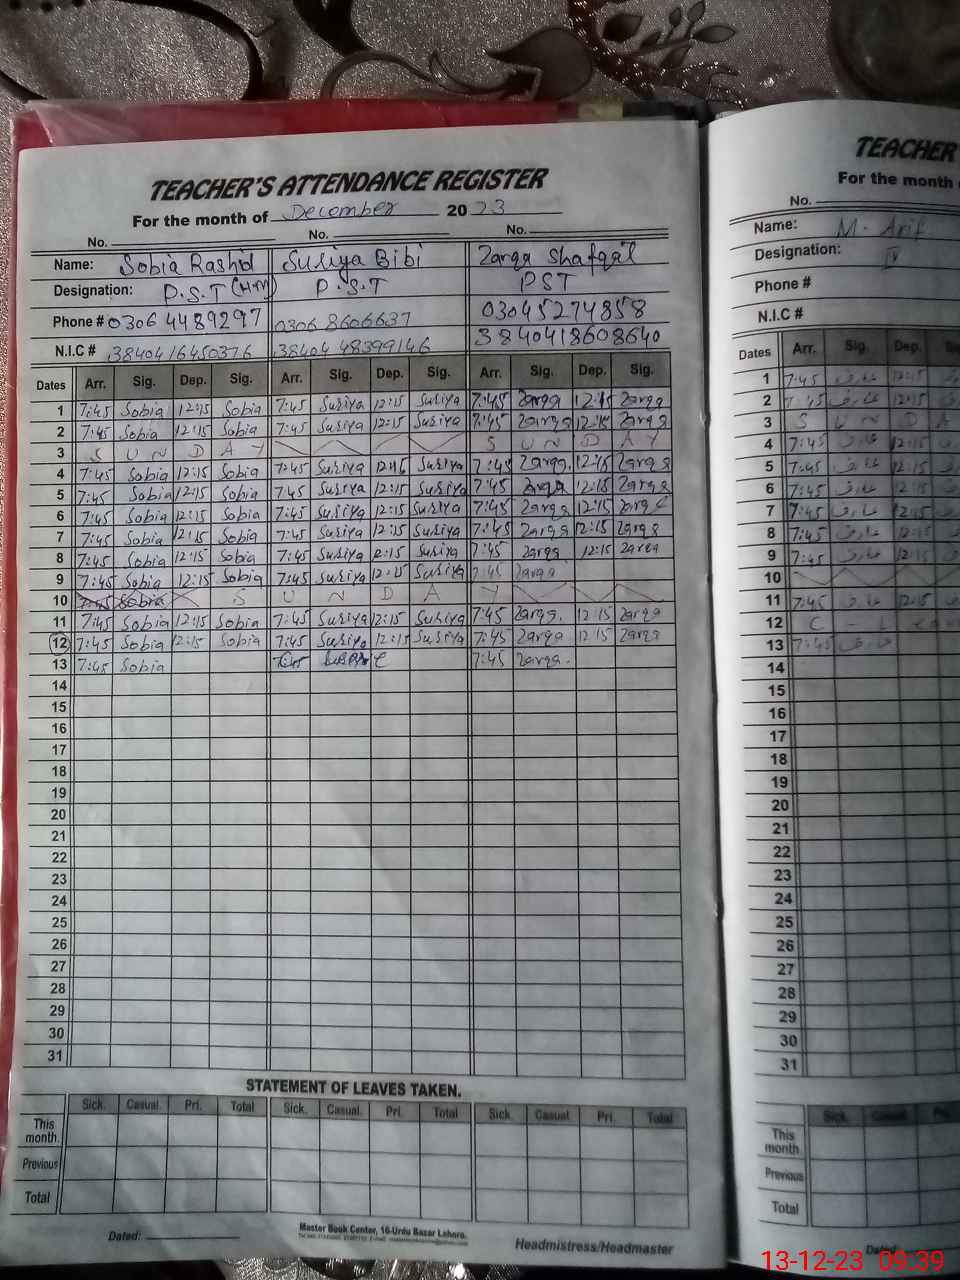 TEACHER'S ATTENDANCE REGISTER
For the month of December 2023
No. No. No.
Name: Sobia Rashid Suriya Bibi Zarqa Shafqat
Designation: P.S.T (H.M) P.S.T PST
Phone # 0306 4489297 0306 8606637 03045274858
N.I.C # 3840416450376 3840448399146 3840418608640
Dates Arr. Sig. Dep. Sig. Arr. Sig. Dep. Sig. Arr. Sig. Dep. Sig.
1 7:45 Sobia 12:15 Sobia 7:45 Suriya 12:15 Suriya 7:45 Zarqa 12:15 Zarqa
2 7:45 Sobia 12:15 Sobia 7:45 Suriya 12:15 Suriya 7:45 Zarqa 12:15 Zarqa
3 S U N D A Y S U N D A Y
4 7:45 Sobia 12:15 Sobia 7:45 Suriya 12:15 Suriya 7:45 Zarqa. 12:15 Zarqa
5 7:45 Sobia 12:15 Sobia 7:45 Suriya 12:15 Suriya 7:45 Zarqa 12:15 Zarqa
6 7:45 Sobia 12:15 Sobia 7:45 Suriya 12:15 Suriya 7:45 Zarqa 12:15 Zarqa
7 7:45 Sobia 12:15 Sobia 7:45 Suriya 12:15 Suriya 7:45 Zarqa 12:15 Zarqa
8 7:45 Sobia 12:15 Sobia 7:45 Suriya 12:15 Suriya 7:45 Zarqa 12:15 Zarqa
9 7:45 Sobia 12:15 Sobia 7:45 Suriya 12:15 Suriya 7:45 Zarqa
10 7:45 Sobia S U N D A Y
11 7:45 Sobia 12:15 Sobia 7:45 Suriya 12:15 Suriya 7:45 Zarqa. 12:15 Zarqa
12 7:45 Sobia 12:15 Sobia 7:45 Suriya 12:15 Suriya 7:45 Zarqa 12:15 Zarqa
13 7:45 Sobia 7:45 Zarqa.
14
15
16
17
18
19
20
21
22
23
24
25
26
27
28
29
30
31
STATEMENT OF LEAVES TAKEN.
Sick. Casual. Pri. Total Sick. Casual. Pri. Total Sick. Casual Pri. Total
This month.
Previous
Total
Dated:
Master Book Center, 16-Urdu Bazar Lahore.
Headmistress/Headmaster
TEACHER
For the month
No.
Name: M. Arif
Designation: IV
Phone #
N.I.C #
Dates Arr. Sig. Dep.
1 7:45 عارف 12:15
2 7:45 عارف 12:15
3 S U N D A
4 7:45 عارف 12:15
5 7:45 عارف 12:15
6 7:45 عارف 12:15
7 7:45 عارف 12:15
8 7:45 عارف 12:15
9 7:45 عارف 12:15
10
11 7:45 عارف 12:15
12 C L
13 7:45 عارف
14
15
16
17
18
19
20
21
22
23
24
25
26
27
28
29
30
31
Sick. Casual Pri.
This month
Previous
Total
Dated:
13-12-23 09:39